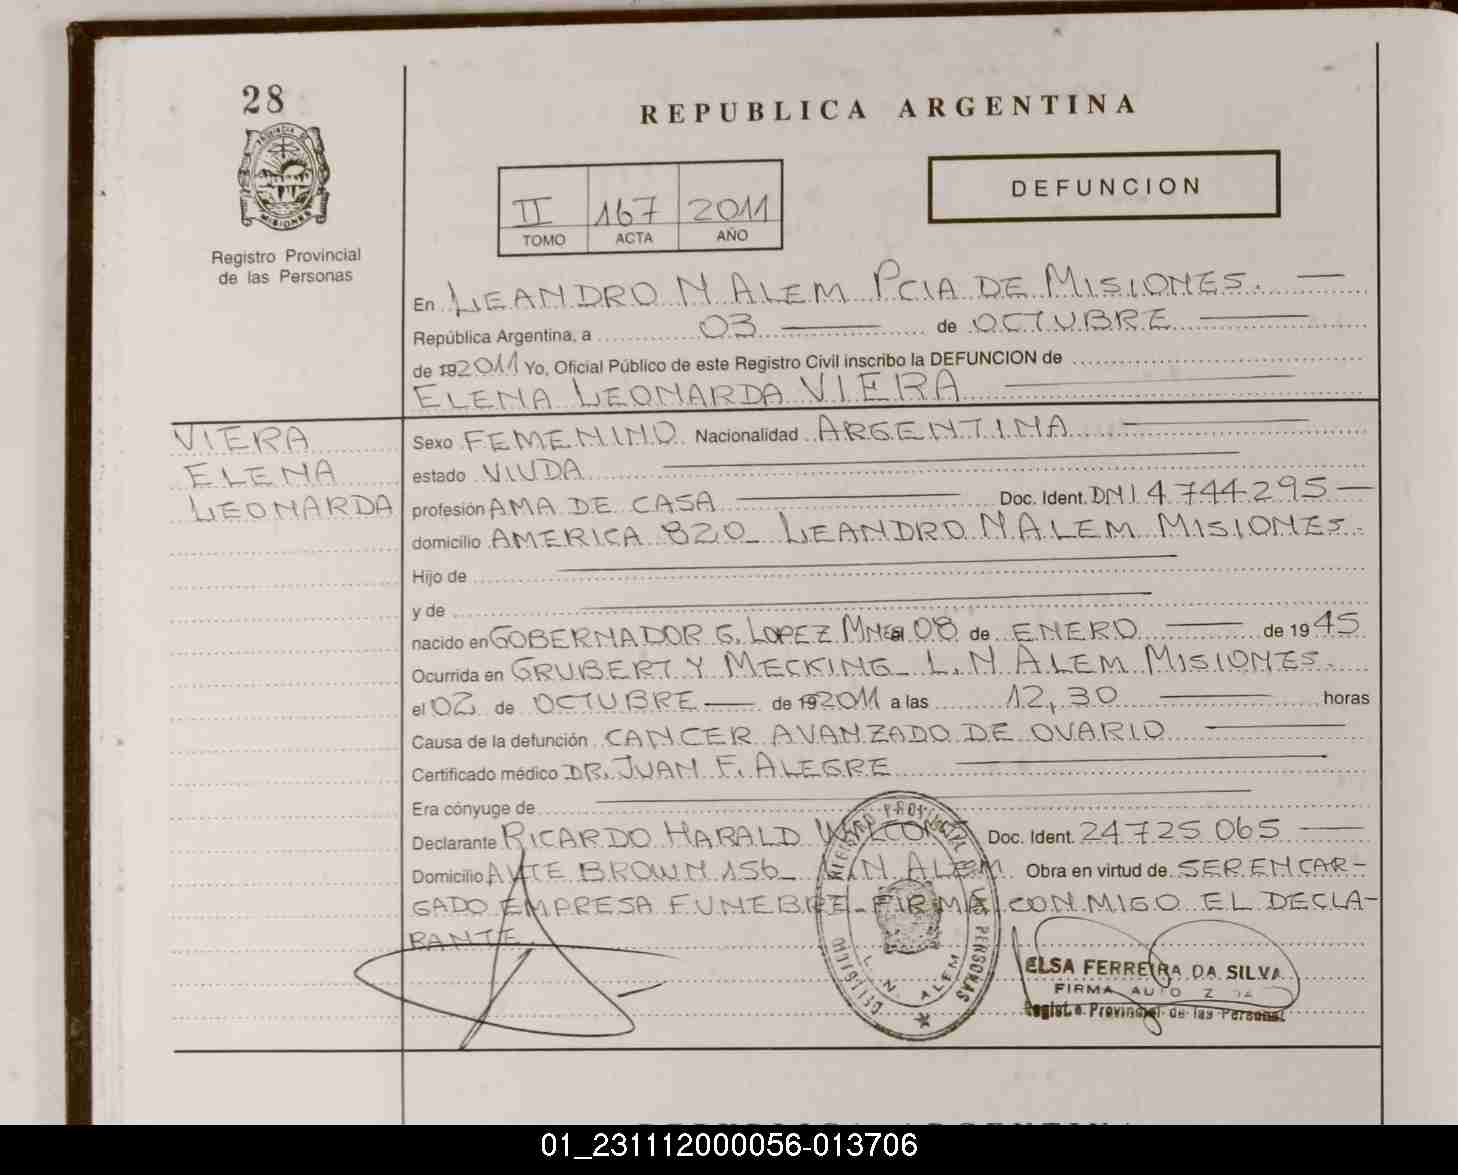 28
REPUBLICA ARGENTINA
PROVINCIA DE
MISIONES
Registro Provincial
de las Personas
DEFUNCION
II 167 2011
TOMO ACTA AÑO
En LEANDRO N ALEM PCIA DE MISIONES.
República Argentina, a 03 de OCTUBRE
de 192011 Yo, Oficial Público de este Registro Civil inscribo la DEFUNCION de
ELENA LEONARDA VIERA
VIERA
ELENA
LEONARDA
Sexo FEMENINO Nacionalidad ARGENTINA
estado VIUDA
profesión AMA DE CASA Doc. Ident. DNI 4744295
domicilio AMERICA 820_ LEANDRO N ALEM MISIONES.
Hijo de
y de
nacido en GOBERNADOR G. LOPEZ MNES el 08 de ENERO de 1945
Ocurrida en GRUBERT Y MECKING_ L.N ALEM MISIONES.
el 02 de OCTUBRE de 192011 a las 12,30 horas
Causa de la defunción CANCER AVANZADO DE OVARIO
Certificado médico DR. JUAN F. ALEGRE
Era cónyuge de
Declarante RICARDO HARALD Doc. Ident. 24.725.065
Domicilio AVTE BROWN 156_ L.N. ALEM Obra en virtud de SER ENCAR-
GADO EMPRESA FUNEBRE_ FIRMA CONMIGO EL DECLA-
RANTE.
REGISTRO PROVINCIAL DE LAS PERSONAS
L. N. ALEM
ELSA FERREIRA DA SILVA
FIRMA
Provincial de las Personas
01_231112000056-013706